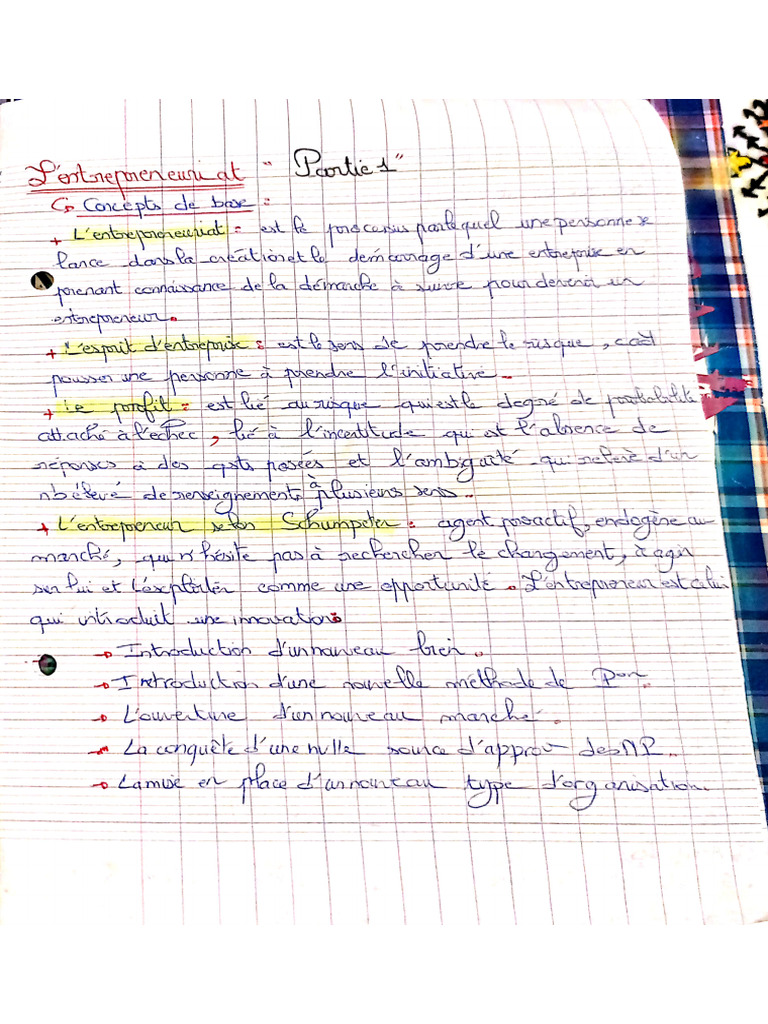 L'entrepreneuriat "Partie 1"
Concepts de base :
+ L'entrepreneuriat : est le processus par lequel une personne se
lance dans la création et le démarrage d'une entreprise en
prenant connaissance de la démarche à suivre pour devenir un
entrepreneur.
+ L'esprit d'entreprise : est le sens de prendre le risque, càd
pousser une personne à prendre l'initiative.
+ Le profit : est lié au risque qui est le degré de probabilité
attaché à l'échec, lié à l'incertitude qui est l'absence de
réponses à des qsts posées et l'ambiguité qui relève d'un
nb élevé de renseignements à plusieurs sens.
+ L'entrepreneur selon Schumpeter : agent proactif, endogène au
marché, qui n'hésite pas à rechercher le changement, à agir
sur lui et l'exploiter comme une opportunité. L'entrepreneur est celui
qui introduit une innovation :
→ Introduction d'un nouveau bien.
→ Introduction d'une nouvelle méthode de Pon.
→ L'ouverture d'un nouveau marché.
→ La conquête d'une nvlle source d'approv des MP.
→ La mise en place d'un nouveau type d'organisation.